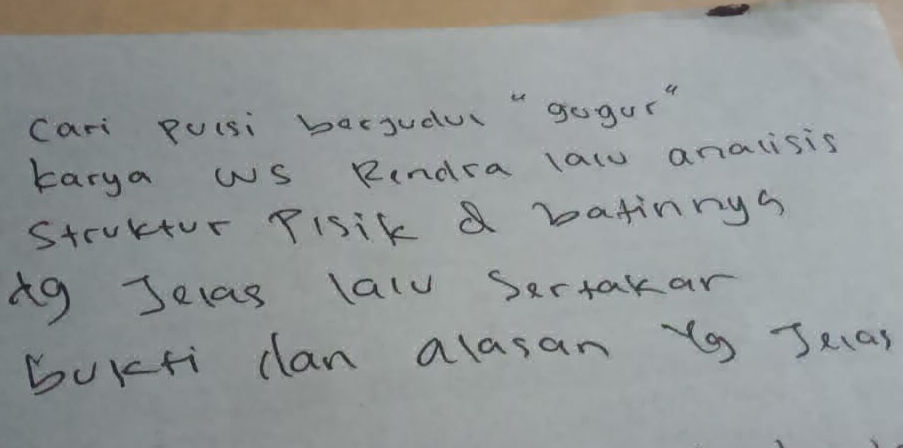 Cari puisi berjudul "gugur"
karya WS Rendra lalu analisis
Struktur Pisik & batinnya
dg Jelas lalu Sertakan
Bukti dan alasan Yg Jelas